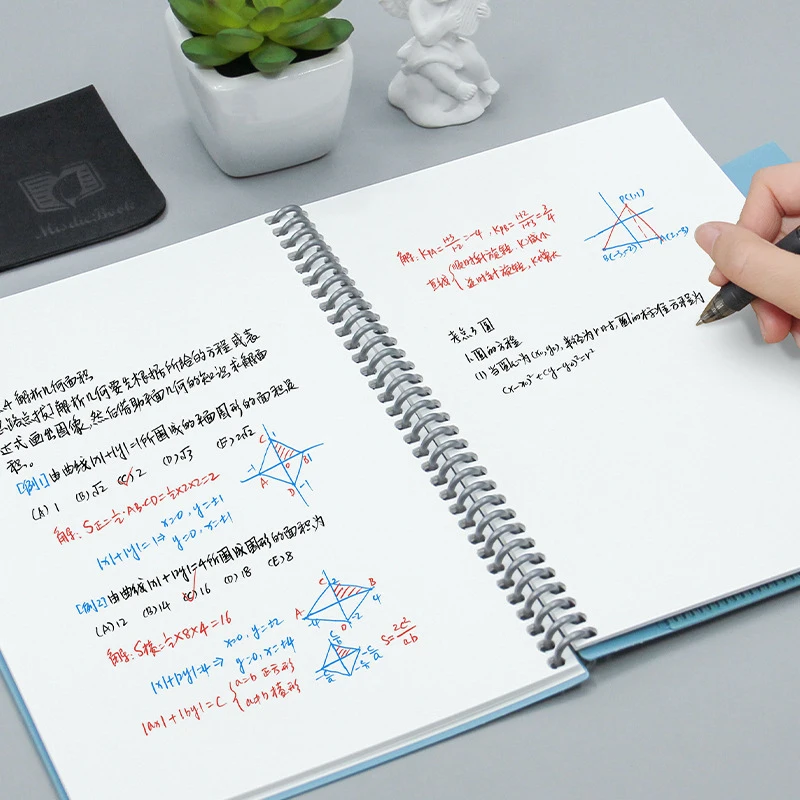 4 解析几何面积
[思路点拨]解析几何要先根据所给的方程或表
达式画出图像,然后借助平面几何的知识求解面
积。
[例1]由曲线|x|+|y|=1所围成的平面图形的面积是
(A) 1 (B)√2 (C)2 (D)√3 (E)2√2
解: S正=½·AB·CD=½×2×2=2
|x|+|y|=1⇒ x=0, y=±1
y=0, x=±1
C 1
-1 A O B 1
D -1
[例2]由曲线|x|+|2y|=4所围成图形的面积为
(A)12 (B)14 (C)16 (D)18 (E)8
解: S棱=½×8×4=16
|x|+|2y|=4⇒ x=0, y=±2
y=0, x=±4
C 2
A B
-4 4
D -2
|ax|+|by|=C { a=b 正方形
a≠b 棱形
S=2c²/ab
解: KPA=(1+3)/(1-2)=-4, KPB=(1+2)/(1+3)=3/4
直线 { 顺时针旋转, K减小
逆时针旋转, K增大
P(1,1)
B(-3,-2) A(2,-3)
考点3 圆
1.圆的方程
(1) 当圆心为(x₀,y₀), 半径为r时, 圆的标准方程为
(x-x₀)²+(y-y₀)²=r²